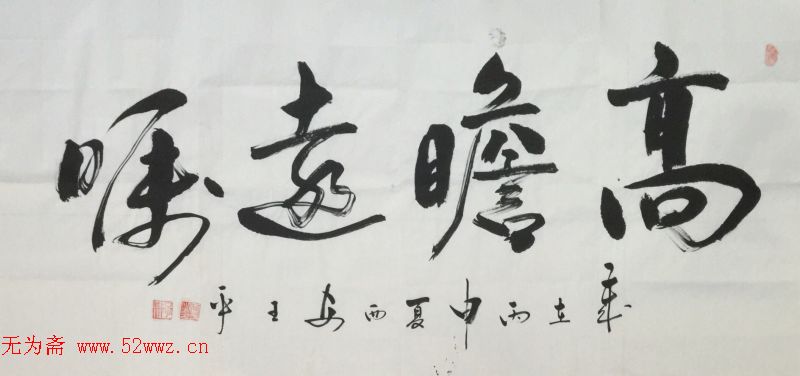 高瞻遠瞩
歲在丙申夏西安王平
无为斋 www.52wwz.cn